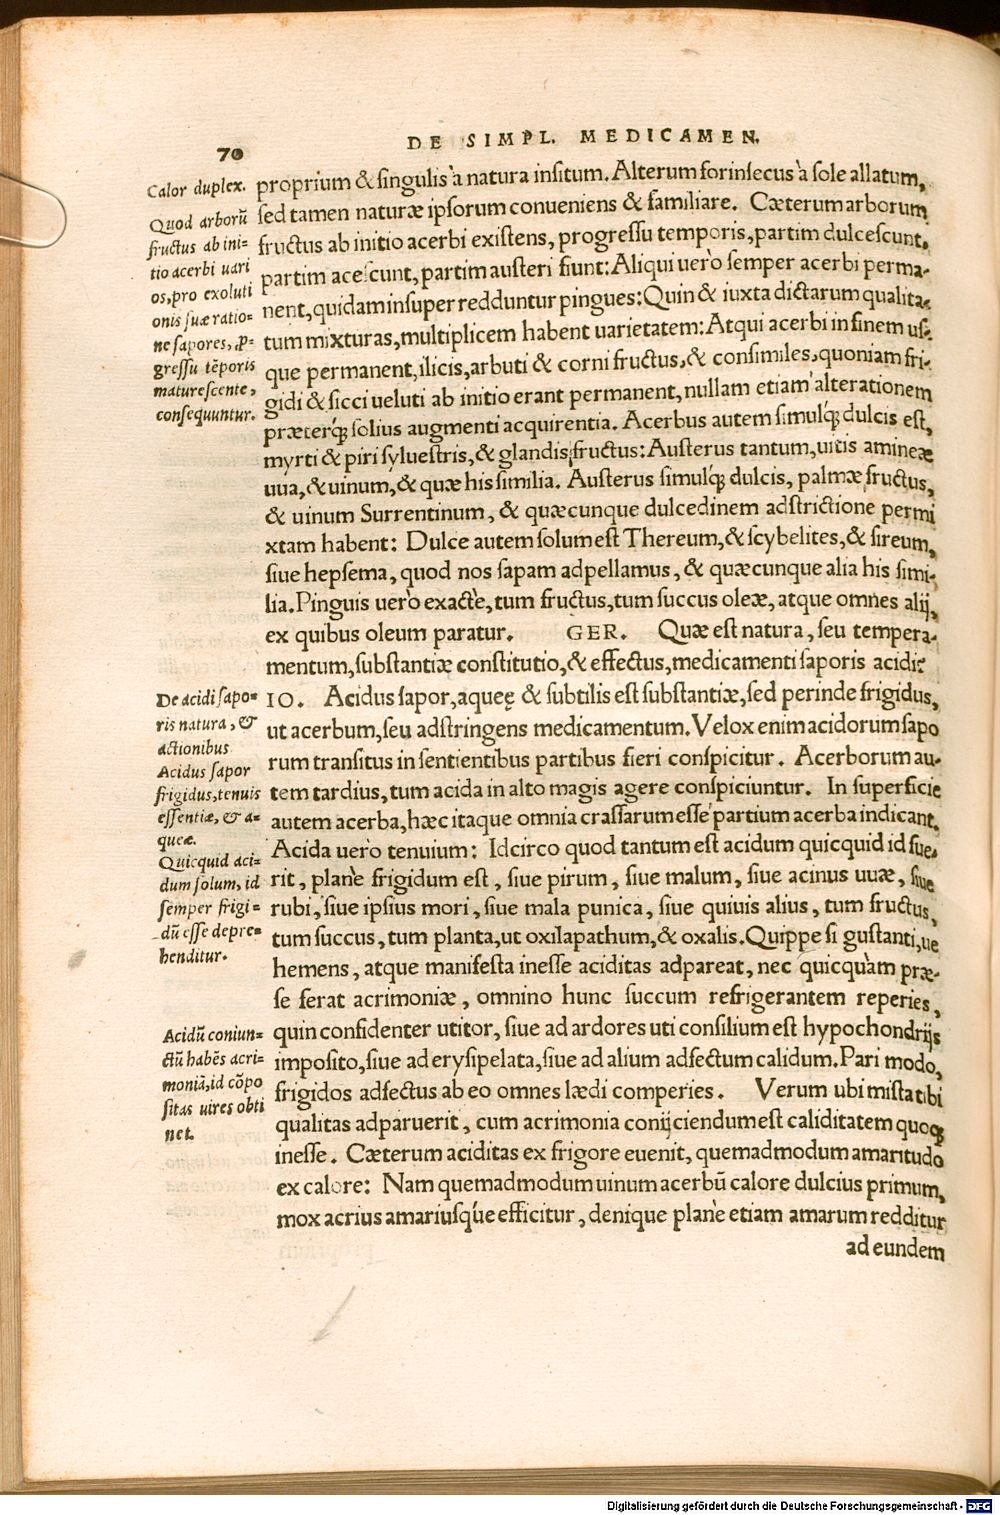 70
DE SIMPL. MEDICAMEN.
Calor duplex.
Quod arborũ
fructus ab ini=
tio acerbi uari
os, pro exoluti
onis suæ ratio=
ne sapores, ꝓ=
gressu tẽporis
maturescente,
consequuntur.
proprium & singulis à natura insitum. Alterum forinsecus à sole allatum,
sed tamen naturæ ipsorum conueniens & familiare. Cæterum arborum
fructus ab initio acerbi existens, progressu temporis, partim dulcescunt,
partim acescunt, partim austeri fiunt: Aliqui uerò semper acerbi perma-
nent, quidam insuper redduntur pingues: Quin & iuxta dictarum qualita-
tum mixturas, multiplicem habent uarietatem: Atqui acerbi in finem us-
que permanent, ilicis, arbuti & corni fructus, & consimiles, quoniam fri-
gidi & sicci ueluti ab initio erant permanent, nullam etiam alterationem
præterq́ꝫ solius augmenti acquirentia. Acerbus autem simulq́ꝫ dulcis est,
myrti & piri syluestris, & glandis fructus: Austerus tantum, uitis amineæ
uua, & uinum, & quæ his similia. Austerus simulq́ꝫ dulcis, palmæ fructus,
& uinum Surrentinum, & quæcunque dulcedinem adstrictione permi
xtam habent: Dulce autem solum est Thereum, & scybelites, & sireum,
siue hepsema, quod nos sapam adpellamus, & quæcunque alia his simi-
lia. Pinguis uerò exactè, tum fructus, tum succus oleæ, atque omnes alij,
ex quibus oleum paratur. GER. Quæ est natura, seu tempera-
mentum, substantiæ constitutio, & effectus, medicamenti saporis acidi?
De acidi sapo=
ris natura, &
actionibus
Acidus sapor
frigidus, tenuis
essentiæ, & a=
queæ.
Quicquid aci=
dum solum, id
semper frigi=
dũ esse depre=
henditur.
IO. Acidus sapor, aqueę & subtilis est substantiæ, sed perinde frigidus,
ut acerbum, seu adstringens medicamentum. Velox enim acidorum sapo
rum transitus in sentientibus partibus fieri conspicitur. Acerborum au-
tem tardius, tum acida in alto magis agere conspiciuntur. In superficie
autem acerba, hæc itaque omnia crassarum esse partium acerba indicant.
Acida uero tenuium: Idcirco quod tantum est acidum quicquid id fue-
rit, planè frigidum est, siue pirum, siue malum, siue acinus uuæ, siue
rubi, siue ipsius mori, siue mala punica, siue quiuis alius, tum fructus,
tum succus, tum planta, ut oxilapathum, & oxalis. Quippe si gustanti, ue
hemens, atque manifesta inesse aciditas adpareat, nec quicquàm præ-
se ferat acrimoniæ, omnino hunc succum refrigerantem reperies,
Acidũ coniun=
ctũ habẽs acri=
moniã, id cõpo
sitas uires obti
net.
quin confidenter utitor, siue ad ardores uti consilium est hypochondrijs
imposito, siue ad erysipelata, siue ad alium adfectum calidum. Pari modo,
frigidos adfectus ab eo omnes lædi comperies. Verum ubi mista tibi
qualitas adparuerit, cum acrimonia conijciendum est caliditatem quoqꝫ
inesse. Cæterum aciditas ex frigore euenit, quemadmodum amaritudo
ex calore: Nam quemadmodum uinum acerbũ calore dulcius primum,
mox acrius amariusq́ue efficitur, denique planè etiam amarum redditur
ad eundem
Digitalisierung gefördert durch die Deutsche Forschungsgemeinschaft - DFG